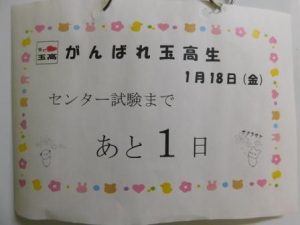 玉高
がんばれ玉高生
1月18日(金)
センター試験まで
あと1日